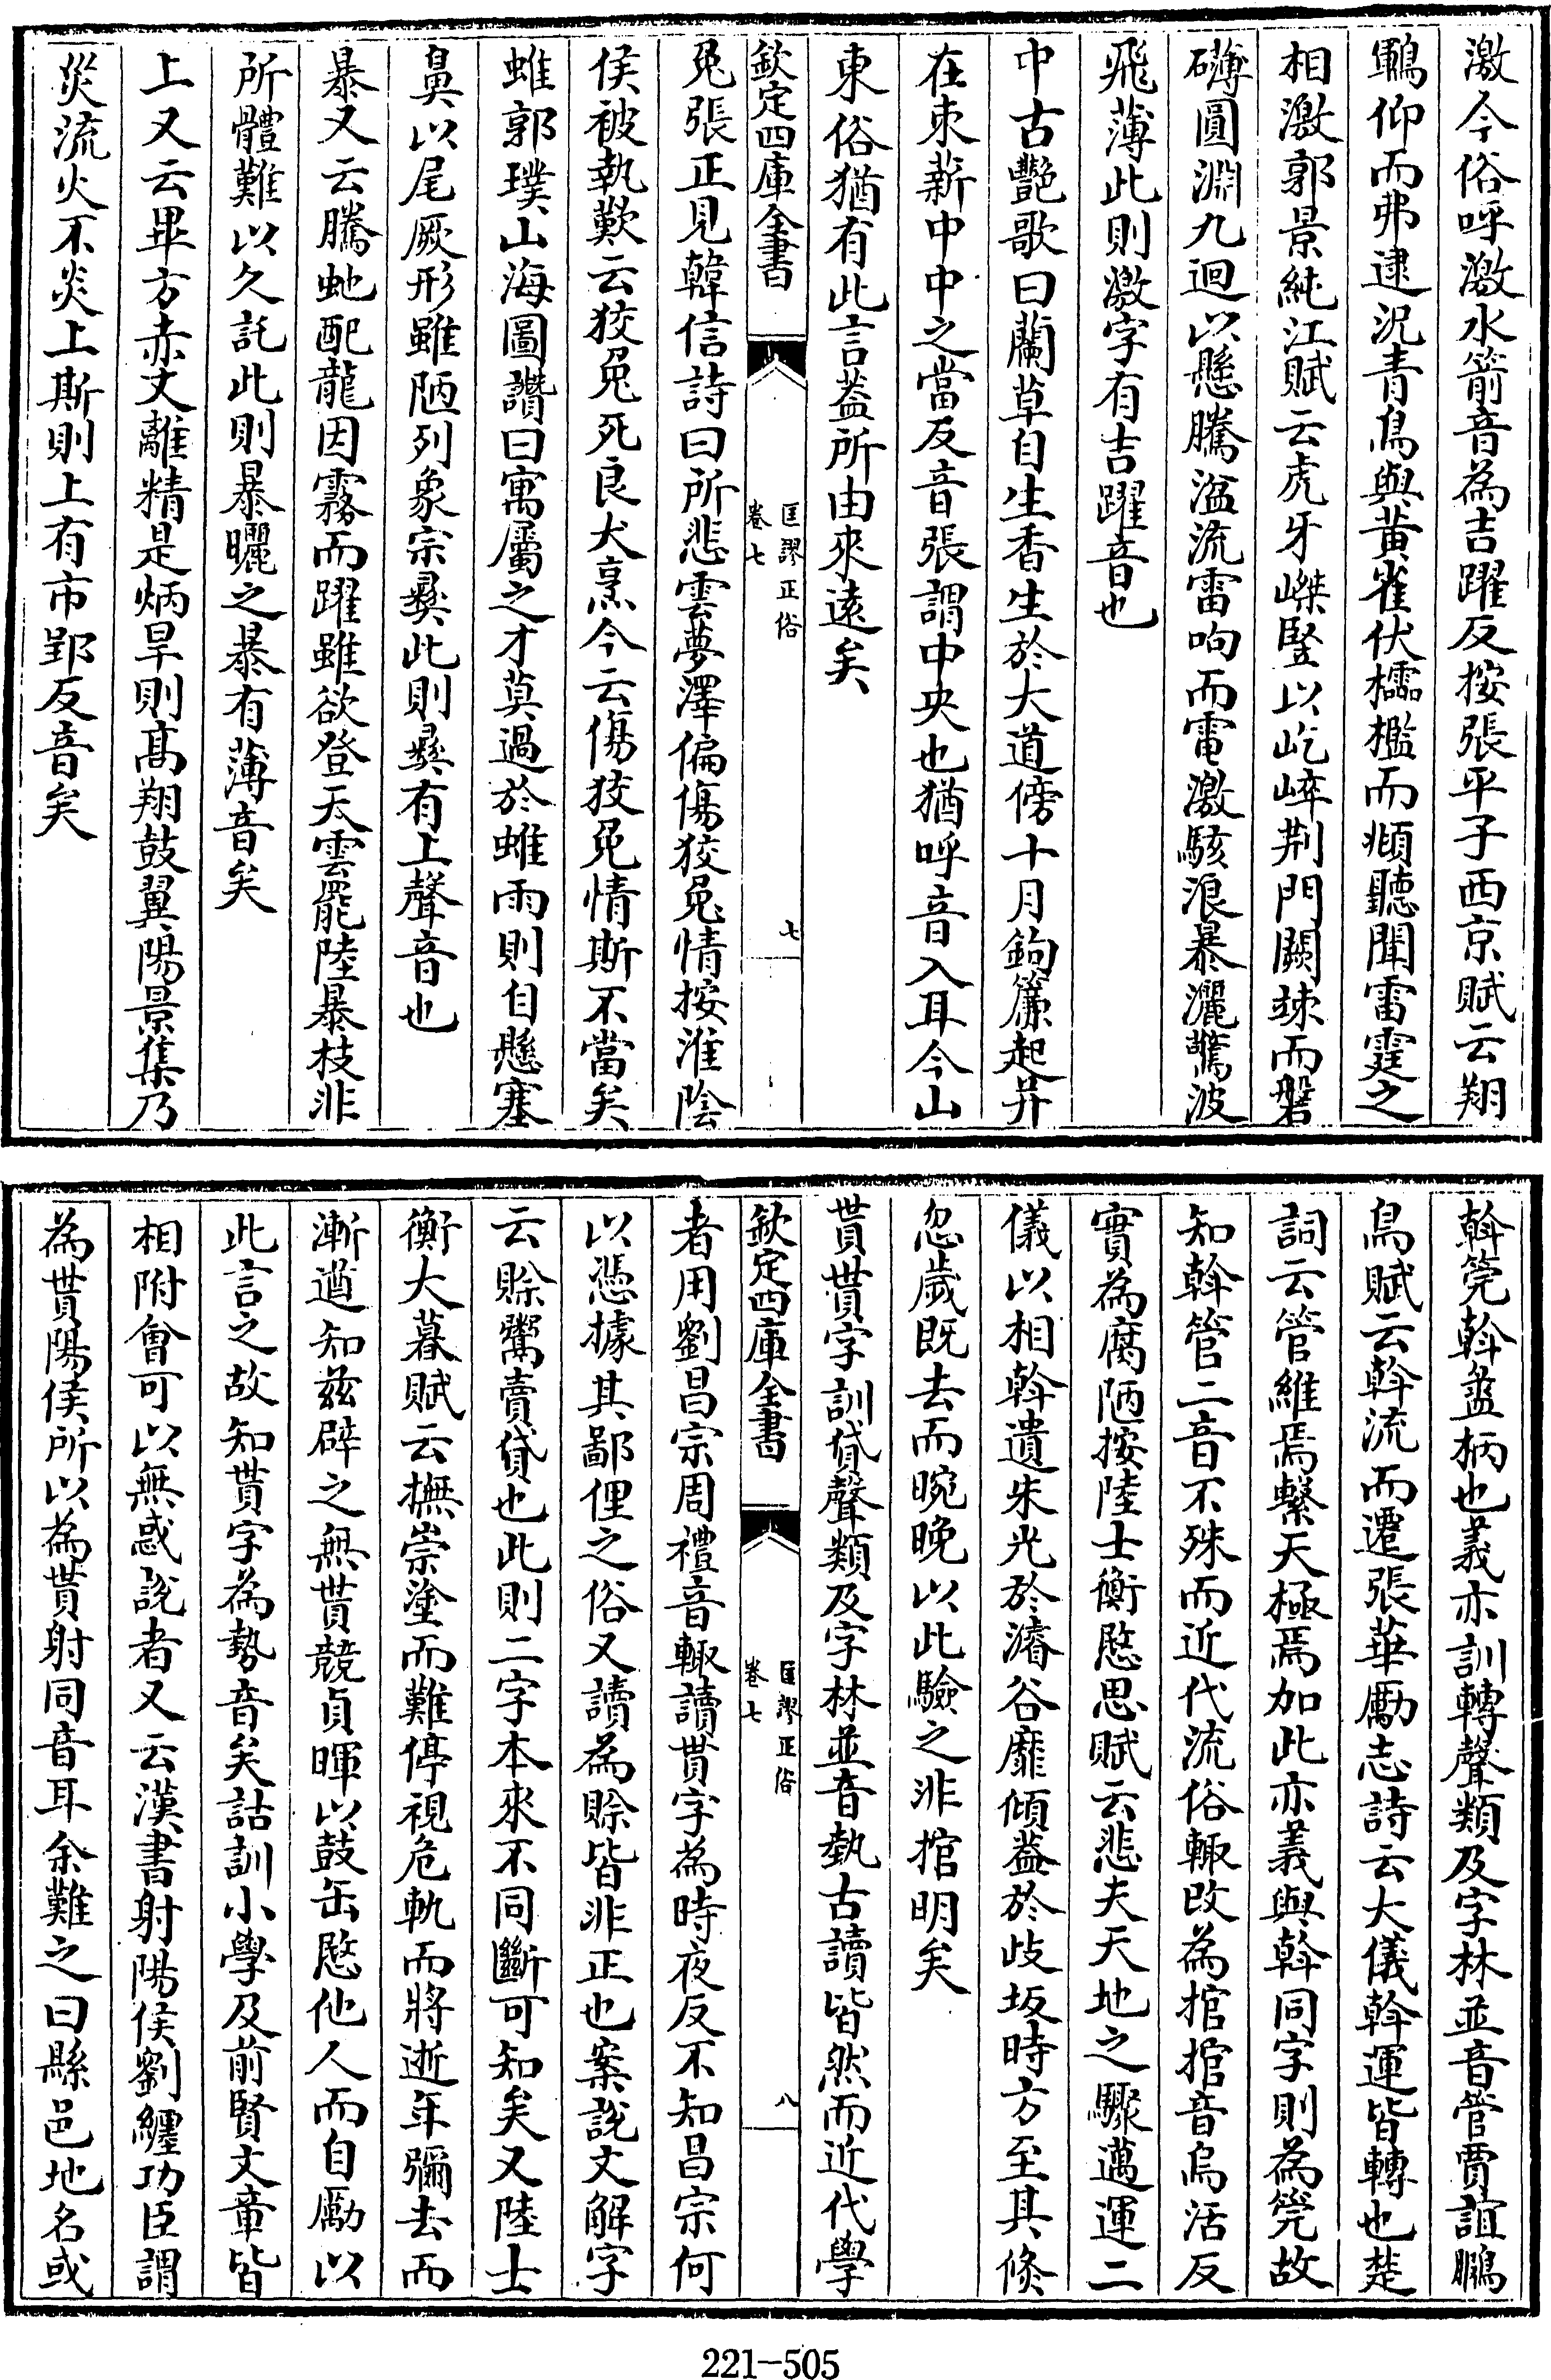 激今俗呼激水箭音為吉躍反按張平子西京賦云翔
鶤仰而弗逮況青鳥與黃雀伏櫺檻而頫聽聞雷霆之
相激郭景純江賦云虎牙嵥豎以屹崪荆門闕竦而磐
礴圓淵九迴以懸騰湓流雷呴而電激駭浪暴灑驚波
飛薄此則激字有吉躍音也
中古艷歌曰蘭草自生香生於大道傍十月鉤簾起并
在束薪中中之當反音張謂中央也猶呼音入耳今山
東俗猶有此言蓋所由來遠矣
欽定四庫全書
匡謬正俗
卷七
七
兔張正見韓信詩曰所悲雲夢澤偏傷狡兔情按淮陰
侯被執歎云狡兔死良犬烹今云傷狡兔情斯不當矣
蜼郭璞山海圖讚曰寓屬之才莫過於蜼雨則自懸塞
鼻以尾厥形雖陋列象宗彞此則彞有上聲音也
暴又云騰虵配龍因霧而躍雖欲登天雲罷陸暴枝非
所體難以久託此則暴曬之暴有薄音矣
上又云畢方赤文離精是炳旱則髙翔鼓翼陽景集乃
災流火不炎上斯則上有市郢反音矣
斡筦斡蠡柄也義亦訓轉聲類及字林並音管賈誼鵩
鳥賦云斡流而遷張華勵志詩云大儀斡運皆轉也楚
詞云管維焉繫天極焉加此亦義與斡同字則為筦故
知斡管二音不殊而近代流俗輙改為捾捾音烏活反
實為腐陋按陸士衡愍思賦云悲夫天地之驟邁運二
儀以相斡遺朱光於濬谷靡傾蓋於歧坂時方至其倐
忽歲既去而晼晚以此驗之非捾明矣
貰貰字訓貸聲類及字林並音埶古讀皆然而近代學
欽定四庫全書
匡謬正俗
卷七
八
者用劉昌宗周禮音輙讀貰字為時夜反不知昌宗何
以憑據其鄙俚之俗又讀為賒皆非正也案說文解字
云賒鬻賣貸也此則二字本來不同斷可知矣又陸士
衡大暮賦云撫崇塗而難停視危軌而將逝年彌去而
漸遒知兹辟之無貰競貞暉以鼓缶愍他人而自勵以
此言之故知貰字為勢音矣詁訓小學及前賢文章皆
相附會可以無惑說者又云漢書射陽侯劉纏功臣謂
為貰陽侯所以為貰射同音耳余難之曰縣邑地名或
221-505